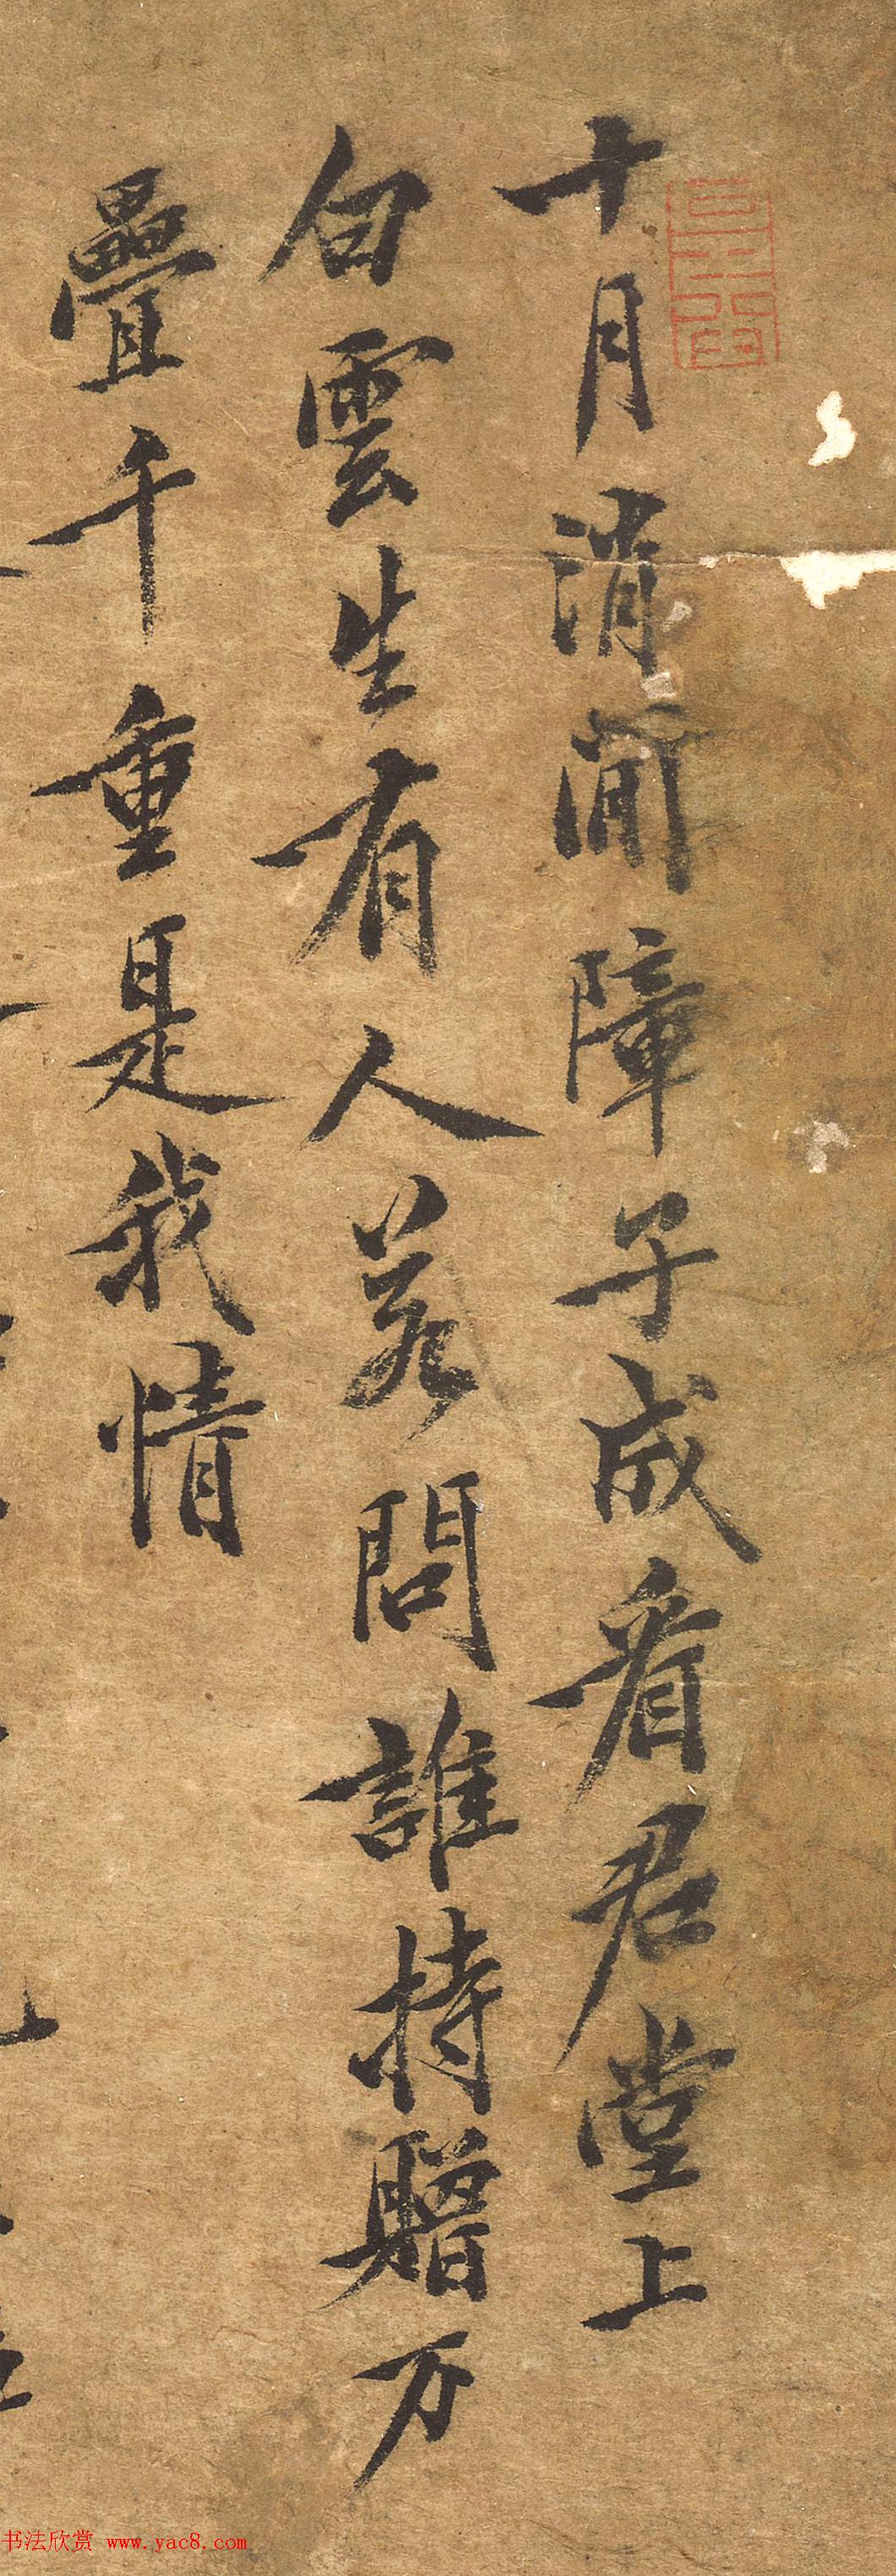 十月消閒障子成看君堂上
白雲生有人若問誰持贈万
疊千重是我情
书法欣赏 www.yac8.com